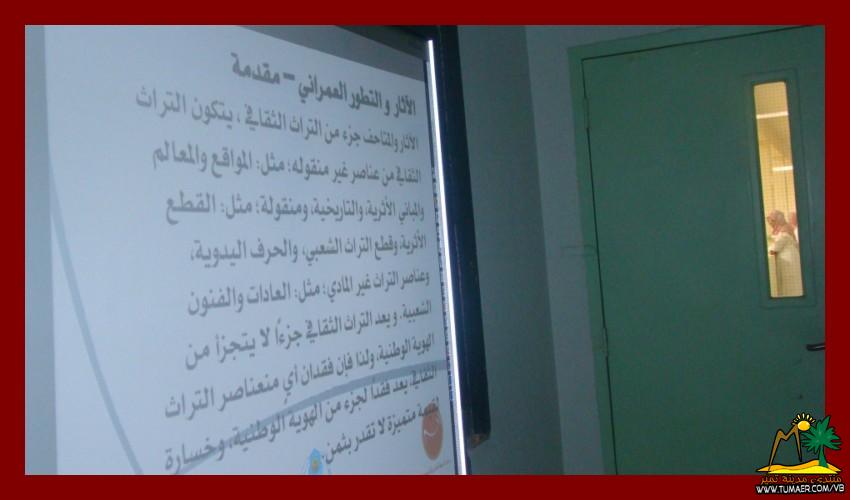 الآثار و التطور العمراني – مقدمة
الآثار والمتاحف جزء من التراث الثقافي ، يتكون التراث
الثقافي من عناصر غير منقوله؛ مثل: المواقع والمعالم
والمباني الأثرية، والتاريخية، ومنقولة؛ مثل: القطع
الأثرية، وقطع التراث الشعبي، والحرف اليدوية،
وعناصر التراث غير المادي؛ مثل: العادات والفنون
الشعبية. و يعد التراث الثقافي جزءًا لا يتجزأ من
الهوية الوطنية، ولذا فإن فقدان أي منعناصر التراث
الثقافي، يعد فقداً لجزء من الهوية الوطنية، وخسارة
لقيمة متميزة لا تقدر بثمن.
منتدى مدينة تمير
WWW.TUMAER.COM/VB